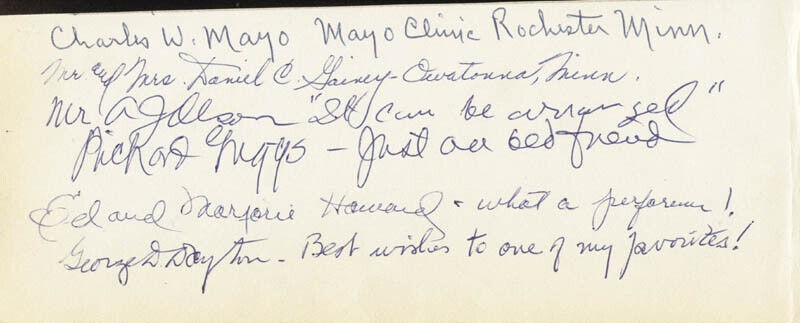 Charles W. Mayo Mayo Clinic Rochester Minn.
Mr and Mrs. Daniel C. Gainey - Owatonna, Minn.
Mr A J Olson "It can be arranged"
Richard Griggs - Just an old friend
Ed and Marjorie Howard - what a performer!
George D Dayton - Best wishes to one of my favorites!